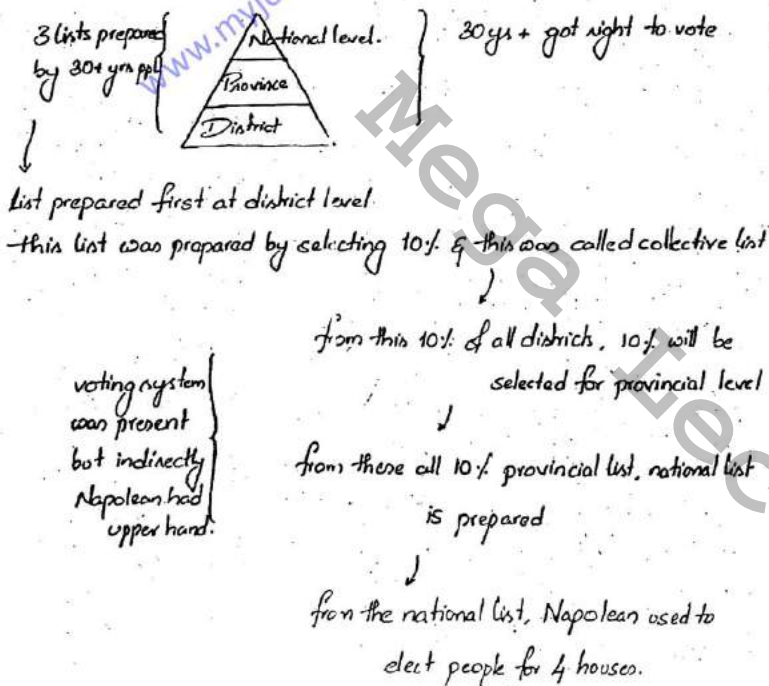 3 lists prepared
by 30+ yrs ppl
National level.
Province
District
30 ys + got right to vote
List prepared first at district level.
- this list was prepared by selecting 10% & this was called collective list
from this 10% of all districts, 10% will be
selected for provincial level
voting system
was present
but indirectly
Napolean had
upper hand.
from these all 10% provincial list, national list
is prepared
from the national list, Napolean used to
elect people for 4 houses.
Mega Lec